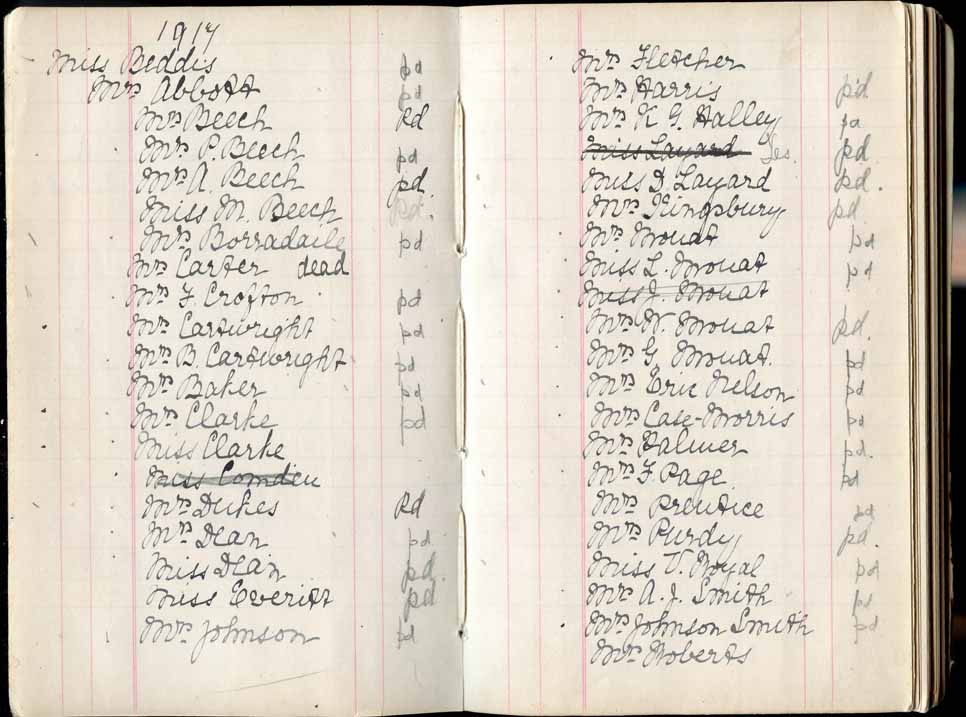 1917
Miss Beddis pd
Mrs Abbott pd
Mrs Beech Rd
Mrs P. Beech pd
Mrs A. Beech pd.
Miss M. Beech pd.
Mrs Borradaile pd
Mrs Carter dead
Mrs F. Crofton pd
Mrs Cartwright pd
Mrs B. Cartwright pd
Mrs Baker pd
Mrs Clarke pd
Miss Clarke
Miss Comden
Mrs Dukes Rd
Mrs Dean pd
Miss Dean pd.
Miss Everitt pd
Mrs Johnson pd
Mrs Fletcher
Mrs Harris pd.
Mrs K G. Halley pd
Miss Layard pd
Miss D. Layard pd.
Mrs Kingsbury pd
Mrs Mouat pd
Miss L. Mouat pd
Miss J. Mouat
Mrs W. Mouat pd.
Mrs G. Mouat. pd
Mrs Eric Nelson pd
Mrs Case-Morris pd
Mrs Palmer pd.
Mrs F. Page pd
Mrs Prentice pd
Mrs Purdy pd.
Miss V. Royal pd
Mrs A. J. Smith pd
Mrs Johnson Smith pd
Mrs Roberts